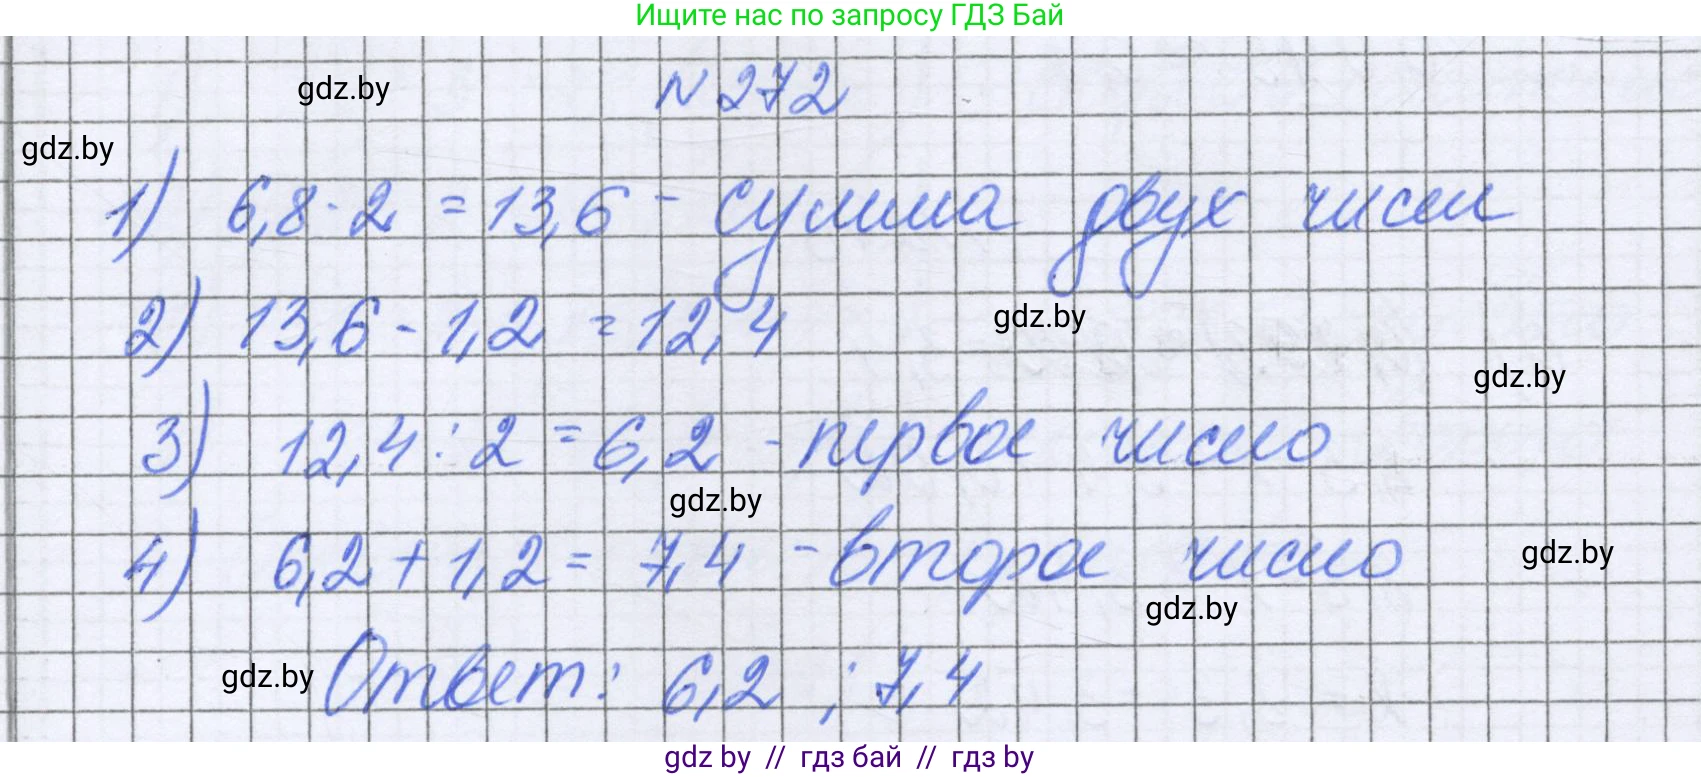 Ищите нас по запросу ГДЗ Бай
gdz.by
N 272
gdz.by
1) 6,8 · 2 = 13,6 - сумма двух чисел
2) 13,6 - 1,2 = 12,4
gdz.by
gdz.by
3) 12,4 : 2 = 6,2 - первое число
gdz.by
4) 6,2 + 1,2 = 7,4 - второе число
gdz.by
gdz.by
gdz.by
Ответ: 6,2 ; 7,4
gdz by // гдз бай // гдз by